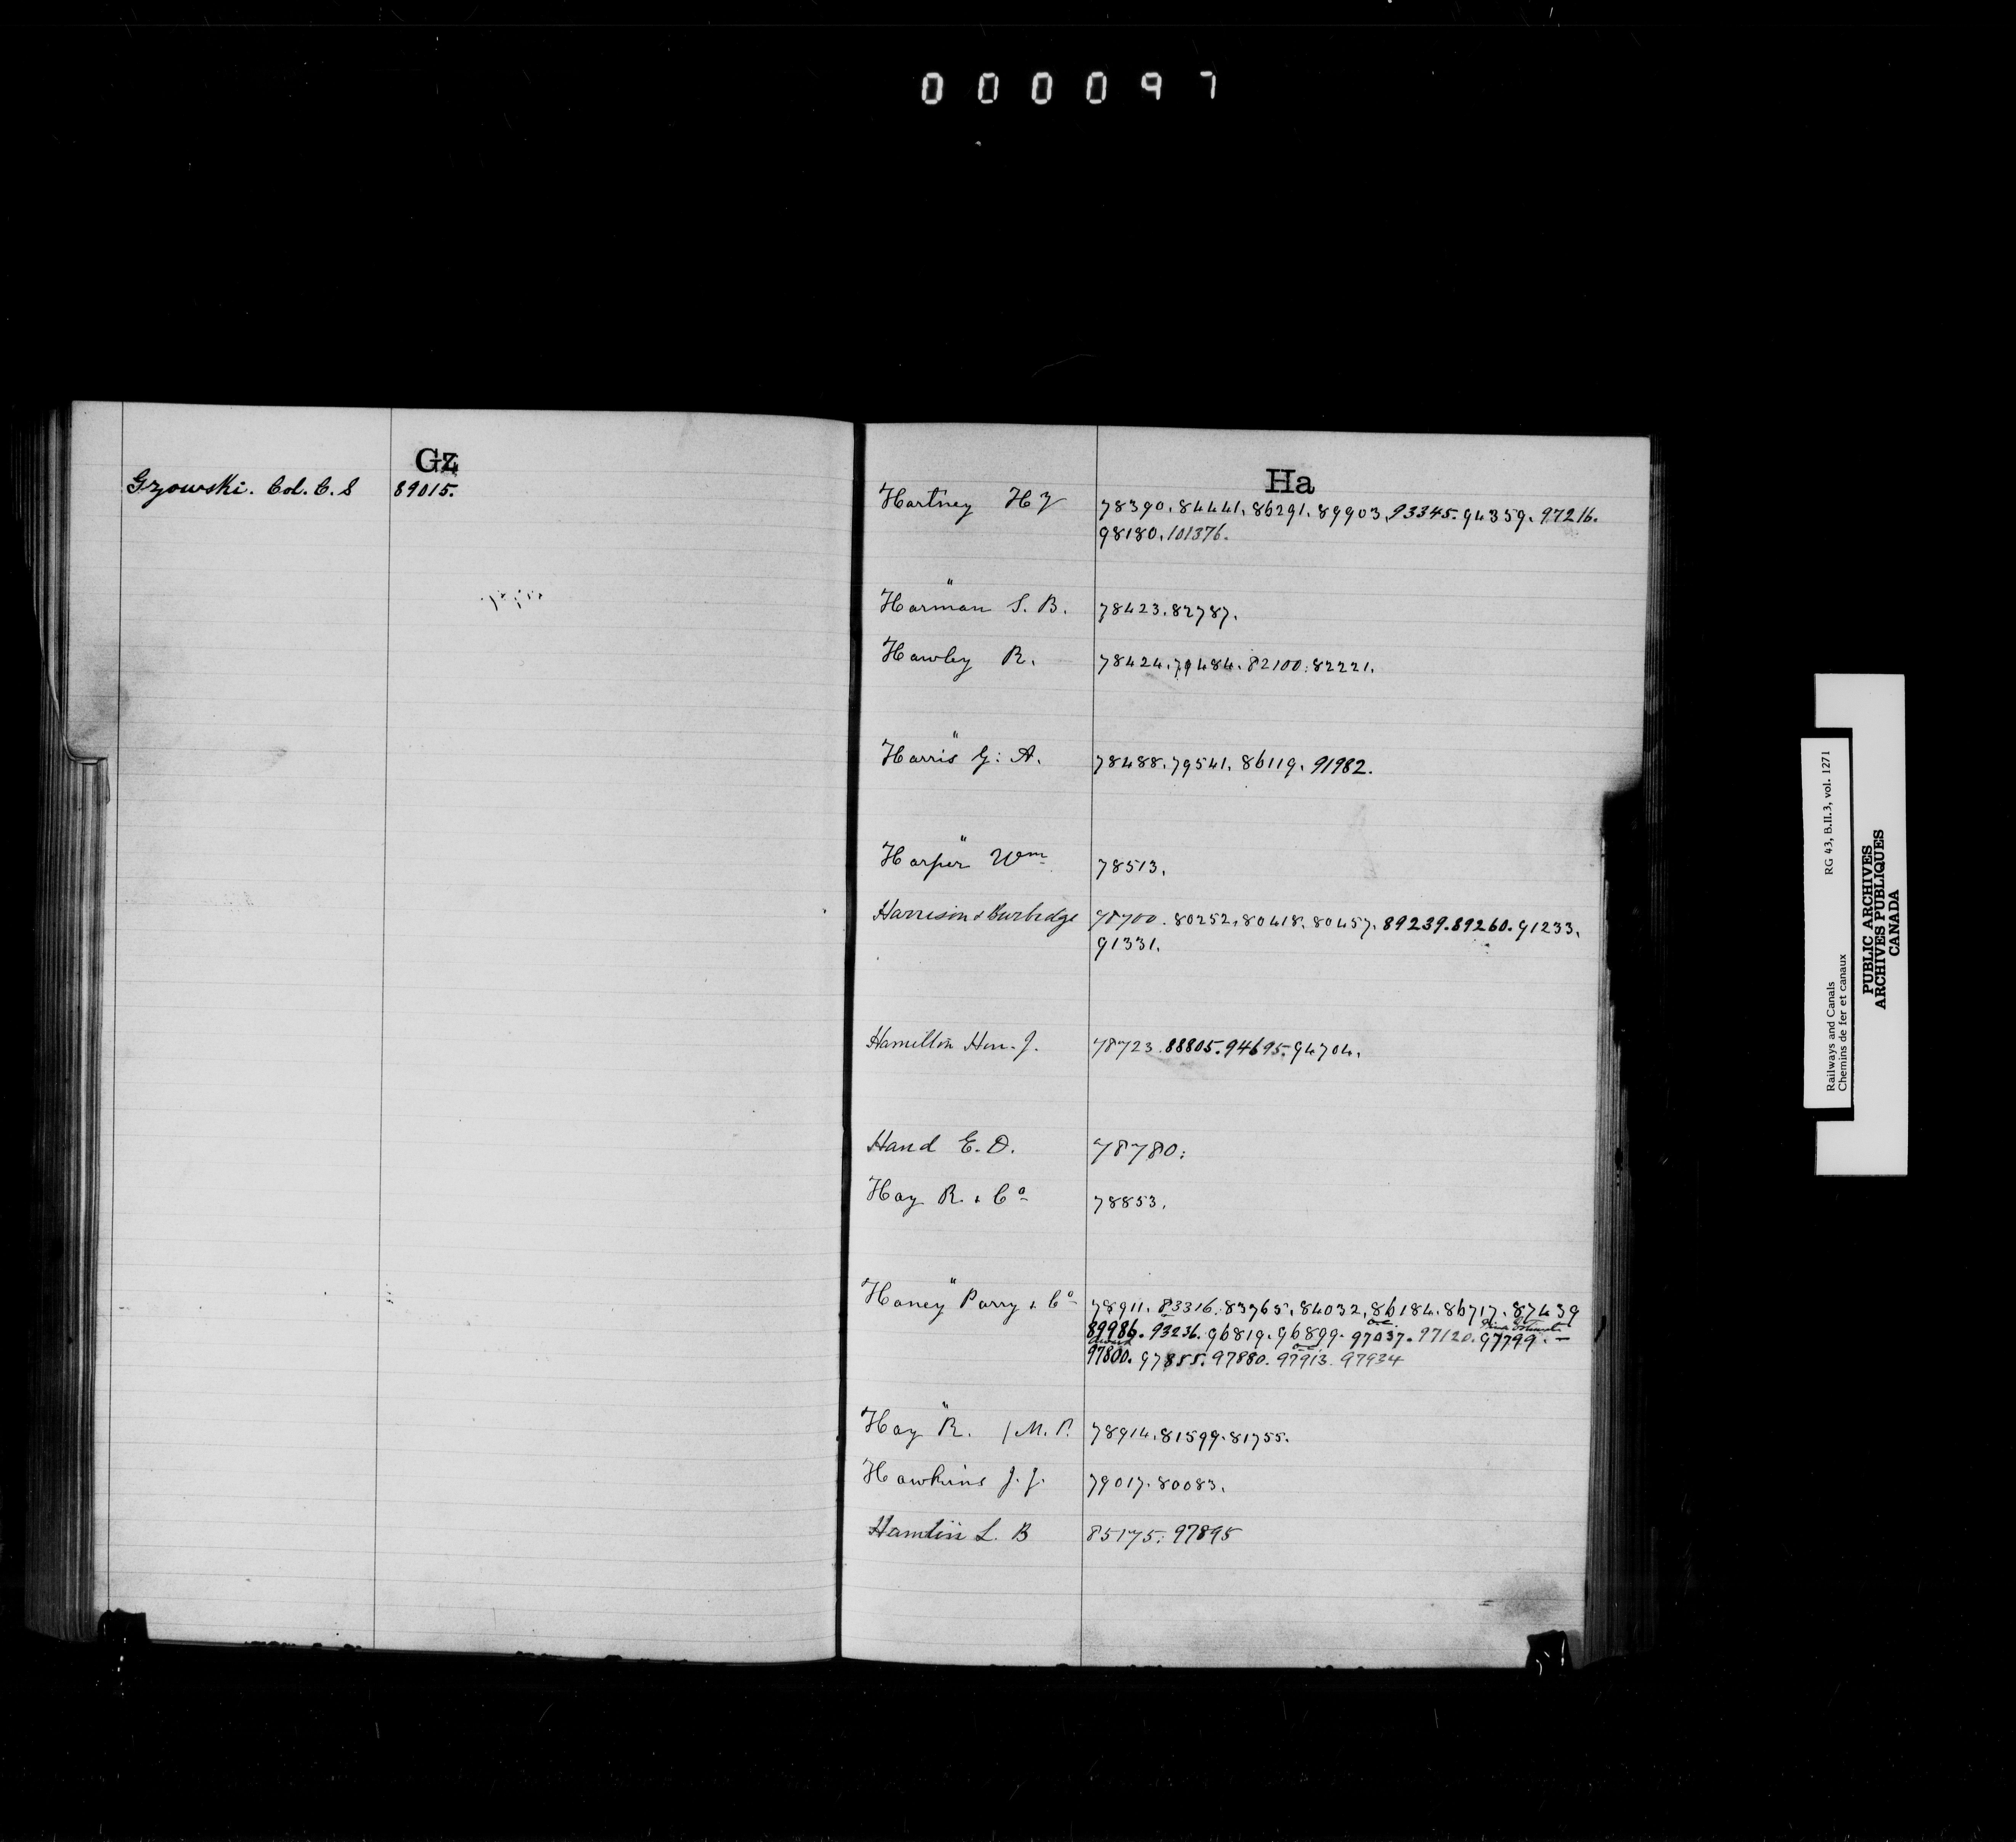 000097
Gz
Gzowski. Col. C. S 89015.
Ha
Hartney H J 78390. 84441. 86291. 89903. 93345. 94359. 97216.
98180. 101376.
Harman S. B. 78423. 82787.
Hawley R. 78424. 79484. 82100: 82221.
Harris G: A. 78488. 79541. 86119. 91982.
Harper Wm 78513.
Harrison & Burbidge 78700. 80252. 80418. 80457. 89239. 89260. 91233.
91331.
Hamilton Hon. J. 78723. 88805. 94695. 94704.
Hand E. D. 78780:
Hay R. & Co 78853.
Haney " Parry & Co 78911. 83316. 83765. 84032. 86184. 86717. 87439
89986. 93236. 96819. 96899. 97037. 97120. 97799. —
97800. 97855. 97880. 97913. 97934
Hay " R. / M. P. 78914. 81599. 81755.
Hawkins J. J. 79017. 80083.
Hamlin L. B 85175: 97895
Railways and Canals RG 43, B.II.3, vol. 1271
Chemins de fer et canaux
PUBLIC ARCHIVES
ARCHIVES PUBLIQUES
CANADA